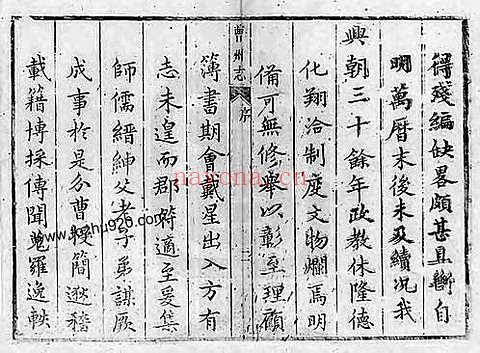 得殘編缺畧頗甚且斷自
明萬曆末後未及續况我
興朝三十餘年政教休隆德
化翔洽制度文物爛焉明
備可無修舉以彰至理顧
曹州志
序
簿書期會戴星出入方有
志未遑而郡檄適至爰集
師儒縉紳父老子弟謀厥
成事於是分曹授簡遐稽
載籍博採傳聞蒐羅逸軼
nayona.cn